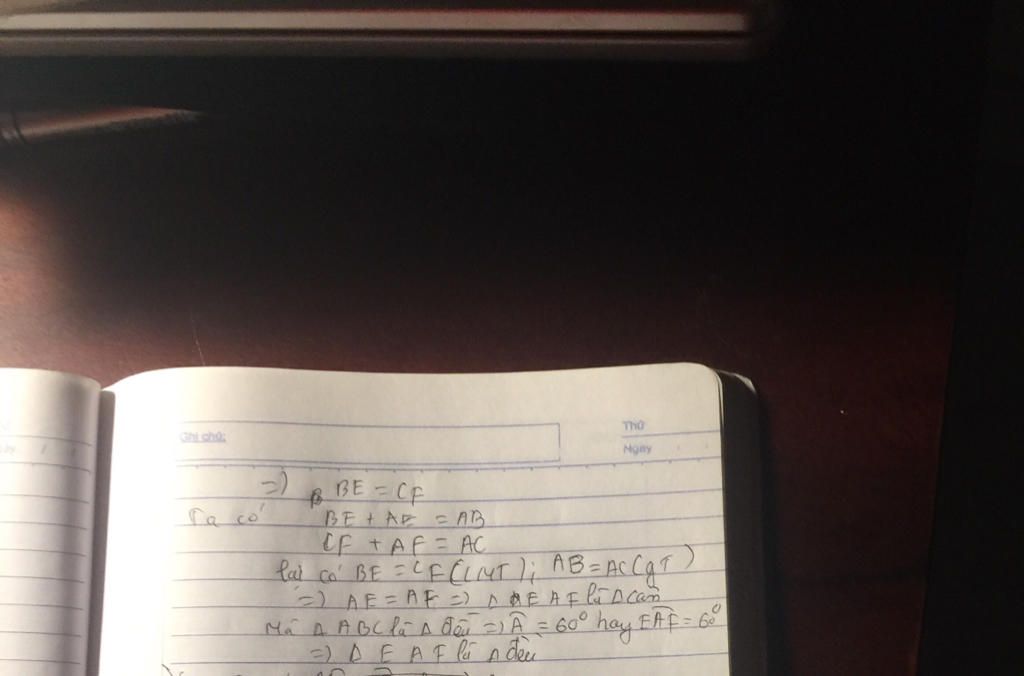 Ghi chú:
Thứ
Ngày
=) BE = CF
Ta có BE + AE = AB
CF + AF = AC
lại có BE = CF (CMT); AB = AC (gT)
=) AE = AF =) Δ EAF là Δ cân
Mà Δ ABC là Δ đều =) Â = 60° hay EÂF = 60°
=) Δ EAF là Δ đều